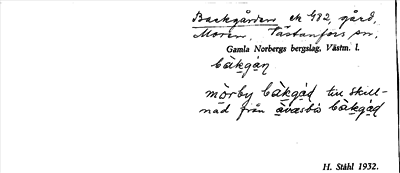 Backgården ek 982, gård,
Morën. Västanfors sn.
Gamla Norbergs bergslag, Västm. l.
bàkgán
mòrby bàkgád till skill-
nad från àvæsbò bàkgád
H. Ståhl 1932.